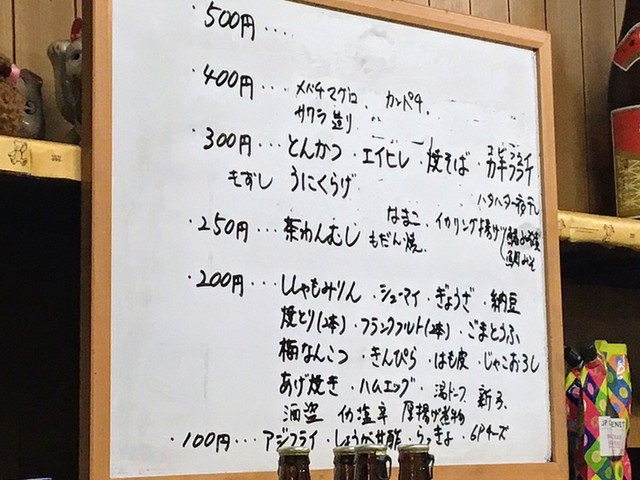 ・500円‥‥
・400円‥‥メバチマグロ、カンパチ、
サワラ造り 〃
・300円‥‥とんかつ・エイヒレ・焼そば・カキフライ
エビフライ
もずし うにくらげ
ハタハタ一夜干し
・250円‥‥茶わんむし なまこ・イカリング揚げ
もだん焼
・200円‥‥ししゃもみりん・シューマイ・ぎょうざ・納豆
焼とり(2本)・フランクフルト(2本)・ごまとうふ
梅なんこつ・きんぴら・はも皮・じゃこおろし
あげ焼き・ハムエッグ・湯ドーフ 新子
酒盗 イカ塩辛 厚揚げ煮物
・100円‥‥アジフライ・しょうが甘酢・らっきょ・6Pチーズ